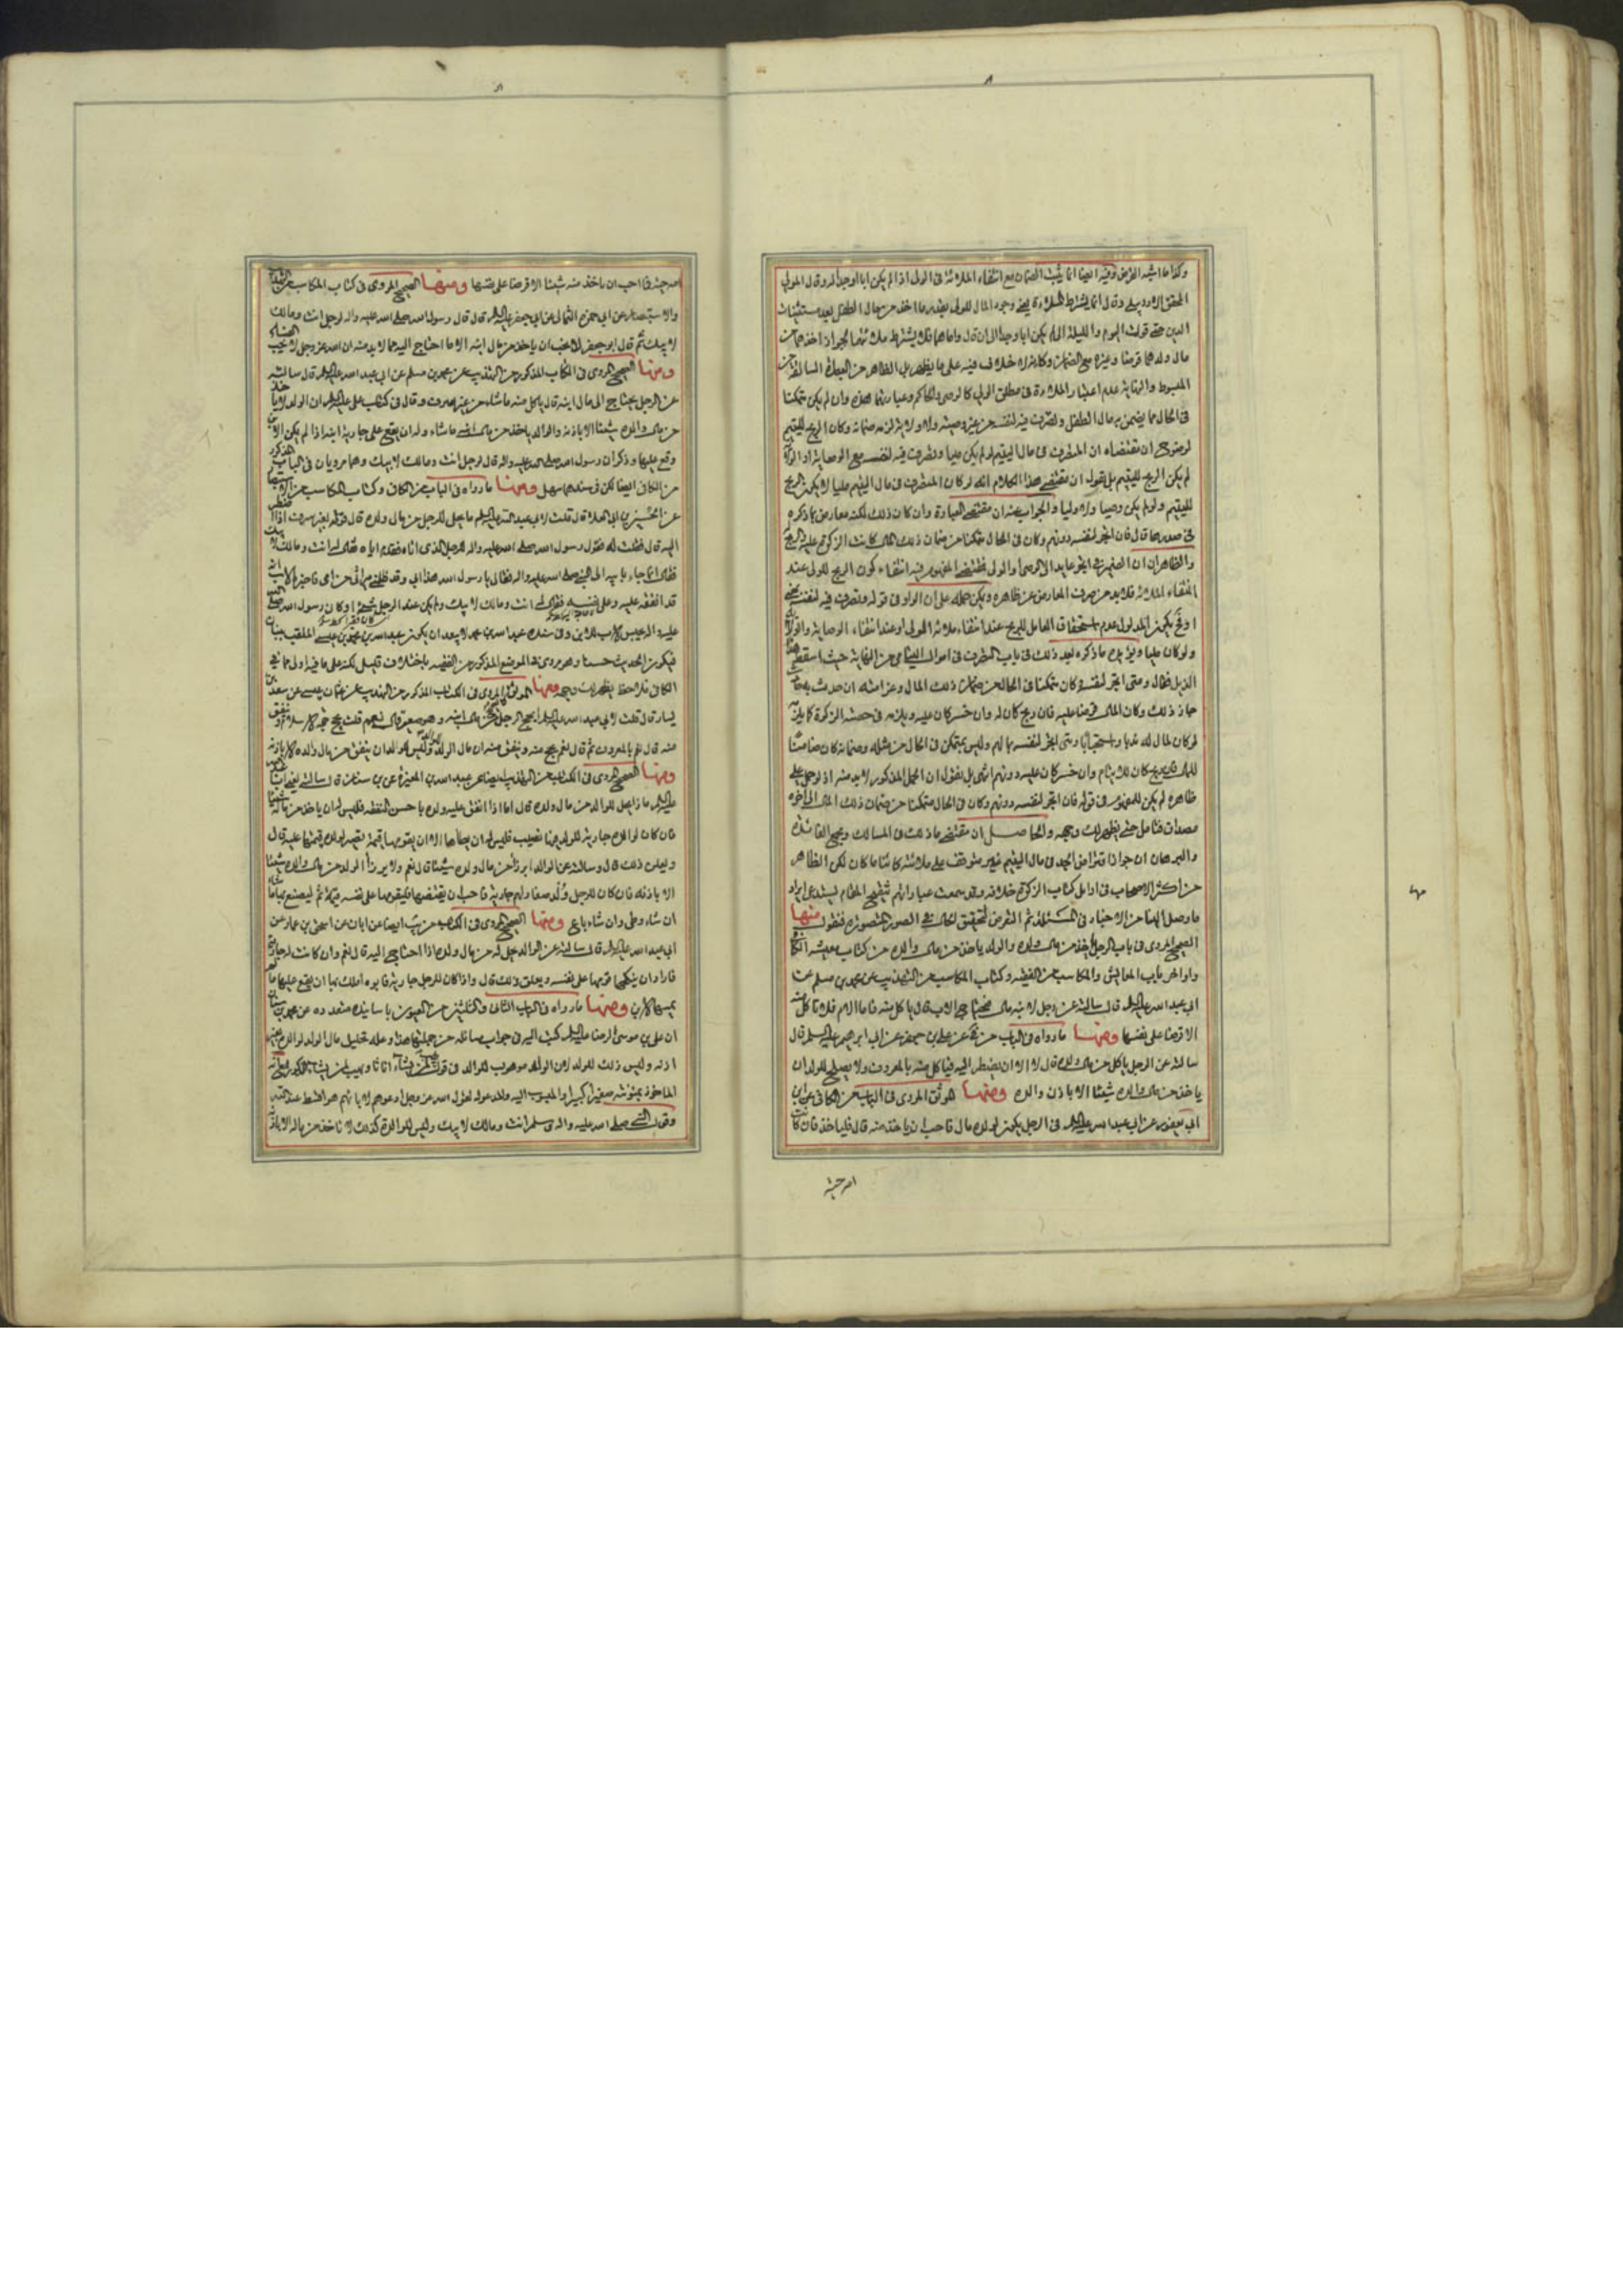 وكذا ما اشبه القرض وفيه ايضا انما يثبت الضمان مع انتفاء الملائة في الولي اذا لم يكن ابا او جدا له وقال المولى
المحقق الاردبيلي وقال انما يشترط الملاءة يعني وجود المال للولي بقدر ما اخذ من مال الطفل بعد مستثنيات
الدين حتى قوت اليوم والليلة اذا لم يكن ابا وجدا الى ان قال واما هما فلا يشترط ملائتهما يجوز اخذهما من
مال ولدهما قرضا وغيره مع الضمان وكانه لا خلاف فيه على ما يظهر بل الظاهر من العبارة السالفة من
المبسوط والنهاية عدم اعتبار الملاءة في مطلق الولي كالوصي والحاكم وعبارتهما هذه وان لم يكن متمكنا
في الحال مما يضمن به مال الطفل وتصرف فيه لنفسه من غير وصية ولا ولاية لزمه ضمانه وكان الربح لليتيم
لوضوح ان مقتضاه ان المتصرف في مال اليتيم لو لم يكن مليا وتصرف فيه لنفسه مع الوصاية او الولاية
لم يكن الربح لليتيم بل نقول ان مقتضى هذا الكلام انه لو كان المتصرف في مال اليتيم مليا لا يكون الربح
لليتيم ولو لم يكن وصيا ولا وليا والجواب عنه ان مقتضى العبارة وان كان ذلك لكنه معارض بما ذكره
في صدرها قال فان اتجر لنفسه دونهم وكان في الحال متمكنا من ضمان ذلك المال كانت الزكوة عليه والربح
والظاهر ان الضمير في اتجر عايد الى الوصي او الولي فمقتضى المفهوم فيه انتفاء كون الربح للولي عند
انتفاء الملائة فلا بد من صرف المعارض عن ظاهره ويمكن حمله على ان الواو في قوله وتصرف فيه لنفسه بمعنى
او فح يكون المدلول عدم استحقاق العامل للربح عند انتفاء ملائة المولى او عند انتفاء الوصاية والولاية
ولو كان مليا ويؤيده ما ذكره بعد ذلك في باب التصرف في اموال اليتامى من النهاية حيث اسقط هذا
الذيل فقال ومتى اتجر لنفسه وكان متمكنا في الحال من ضمان ذلك المال وغرامته ان حدث به حادث
جاز ذلك وكان المال قرضا عليه فان ربح كان له وان خسر كان عليه ويلزمه في حصته الزكوة كما يلزمه
لو كان المال له ندبا واستحبابا ومتى اتجر لنفسه بمالهم وليس بمتمكن في الحال من مثله وضمانه كان ضامنا
للمال فان ربح كان للايتام وان خسر كان عليه دونهم انتهى بل نقول ان الحمل المذكور لا بد منه اذ لو حمل على
ظاهره لم يكن للمفهوم في قوله فان اتجر لنفسه دونهم وكان في الحال متمكنا من ضمان ذلك المال الى اخره
مصداق فتامل حتى يظهر لك وجهه والحاصل ان مقتضى ما ذلك في المسالك ومجمع الفائدة
والبرهان ان جواز اقتراض الجد في مال اليتيم غير متوقف على ملائته كائنا ما كان لكن الظاهر
من اكثر الاصحاب في اوايل كتاب الزكوة خلافه وقد سمعت عباراتهم تنقيح المقام يستدعي ايراد
ما وصل الينا من الاخبار في المسئلة ثم التعرض لتحقيق الحال في الصور المتصورة فنقول منها
الصحيح المروي في باب الرجل ياخذ من مال ولده والولد ياخذ من مال والده من كتاب معيشة الكافي
واواخر باب المعايش والمكاسب من الفقيه وكتاب المكاسب من التهذيب عن محمد بن مسلم عن
ابي عبد الله عليه السلم قال سالته عن رجل لابنه مال فيحتاج الاب قال ياكل منه فاما الام فلا تاكل منه
الا قرضا على نفسها ومنها ما رواه في الباب من في عن علي بن جعفر عن ابي ابرهيم عليه السلم قال
سالته عن الرجل ياكل من مال ولده قال لا الا ان يضطر اليه فياكل منه بالمعروف ولا يصلح للولد ان
ياخذ من مال والده شيئا الا باذن والده ومنها الموثق المروي في الباب من الكافي عن ابن
ابي يعفور عن ابي عبد الله عليه السلم في الرجل يكون لولده مال فاحب ان ياخذ منه قال فلياخذ فان كانت
امه حية
امه حية فما احب ان تاخذ منه شيئا الا قرضا على نفسها ومنها الصحيح المروي في كتاب المكاسب من التهذيب
والاستبصار عن ابي حمزة الثمالي عن ابي جعفر عليه السلم قال قال رسول الله صلى الله عليه واله لرجل انت ومالك
لابيك ثم قال ابو جعفر لا نحب ان ياخذ من مال ابنه الا ما احتاج اليه مما لا بد منه ان الله عز وجل لا يحب الفساد
ومنها الصحيح المروي في الكتاب المذكور من التهذيب عن محمد بن مسلم عن ابي عبد الله عليه السلم قال سالته
عن الرجل يحتاج الى مال ابنه قال ياكل منه ما شاء من غير سرف وقال في كتاب علي عليه السلم ان الولد لا ياخذ
من مال والده شيئا الا باذنه والوالد ياخذ من مال ابنه ما شاء وله ان يقع على جارية ابنه اذا لم يكن الابن
وقع عليها وذكر ان رسول الله صلى الله عليه واله قال لرجل انت ومالك لابيك وهما مرويان في الباب المذكور
من الكافي ايضا لكن في سندهما سهل ومنها ما رواه في الباب من الكافي وكتاب المكاسب من الاستبصار
عن الحسين بن ابي العلا قال قلت لابي عبد الله عليه السلم ما يحل للرجل من مال ولده قال قوته بغير سرف اذا اضطر
اليه قال فقلت له فقول رسول الله صلى الله عليه واله للرجل الذي اتاه فقدم اباه فقال له انت ومالك لابيك
فقال انما جاء بابيه الى النبي صلى الله عليه واله فقال يا رسول الله هذا ابي وقد ظلمني ميراثي من امي فاخبره الاب انه
قد انفقه عليه وعلى نفسه فقال له انت ومالك لابيك ولم يكن عند الرجل شيء او كان رسول الله صلى الله
عليه واله يحبس الاب للابن وفي سنده عبد الله بن محمد لا يبعد ان يكون عبد الله بن محمد بن عيسى الملقب ببنان
فيكون الحديث حسنا وهو مروي في الموضع المذكور من الفقيه باختلاف قليل لكنه على ما فيه اولى مما في
الكافي فلاحظ يظهر لك وجهه ومنها الموثق المروي في الكتاب المذكور من التهذيب عن عثمان بن عيسى عن سعيد بن
يسار قال قلت لابي عبد الله عليه السلم ايحج الرجل من مال ابنه وهو صغير قال نعم قلت يحج حجة الاسلام وينفق
منه قال نعم بالمعروف ثم قال نعم يحج منه وينفق منه ان مال الولد للوالد وليس للولد ان ينفق من مال والده الا باذنه
ومنها الصحيح المروي في الكتاب من التهذيب ايضا عن عبد الله بن المغيرة عن ابن سنان قال سالته يعني ابا عبد الله
عليه السلم ما ذا يحل للوالد من مال ولده قال اما اذا انفق عليه ولده باحسن النفقة فليس له ان ياخذ من ماله شيئا
فان كان لوالده جارية للولد فيها نصيب فليس له ان يطأها الا ان يقومها قيمة تصير لولده قيمتها عليه قال
ويعلن ذلك قال وسالته عن الوالد ايرزأ من مال ولده شيئا قال نعم ولا يرزأ الولد من مال والده شيئا
الا باذنه فان كان للرجل ولد صغار لهم جارية فاحب ان يقتضيها فليقومها على نفسه قيمة ثم ليصنع بها ما شاء
ان شاء وطى وان شاء باع ومنها الصحيح المروي في الكتاب من يب ايضا عن ابان عن اسحق بن عمار عن
ابي عبد الله عليه السلم قال سالته عن الوالد يحل له من مال ولده اذا احتاج اليه قال نعم وان كانت له جارية
فاراد ان ينكحها قومها على نفسه ويعلن ذلك قال واذا كان للرجل جارية فابوه املك بها ان يقع عليها ما لم
يمسها الابن ومنها ما رواه في الباب الثاني والثلثين من العيون باسانيده متعدده عن محمد بن سنان
ان علي بن موسى الرضا عليه السلم كتب اليه في جواب مسائله من جملتها هذا وعلة تحليل مال الولد لوالده بغير
اذنه وليس ذلك للولد لان الولد موهوب للوالد في قوله يهب لمن يشاء اناثا ويهب لمن يشاء الذكور مع انه
الماخوذ بمؤنته صغيرا كبيرا والمنسوب اليه والمدعو له لقول الله عز وجل ادعوهم لابائهم هو اقسط عند الله
وقول النبي صلى الله عليه واله وسلم انت ومالك لابيك وليس للوالدة كذلك لا تاخذ من ماله الا باذنه